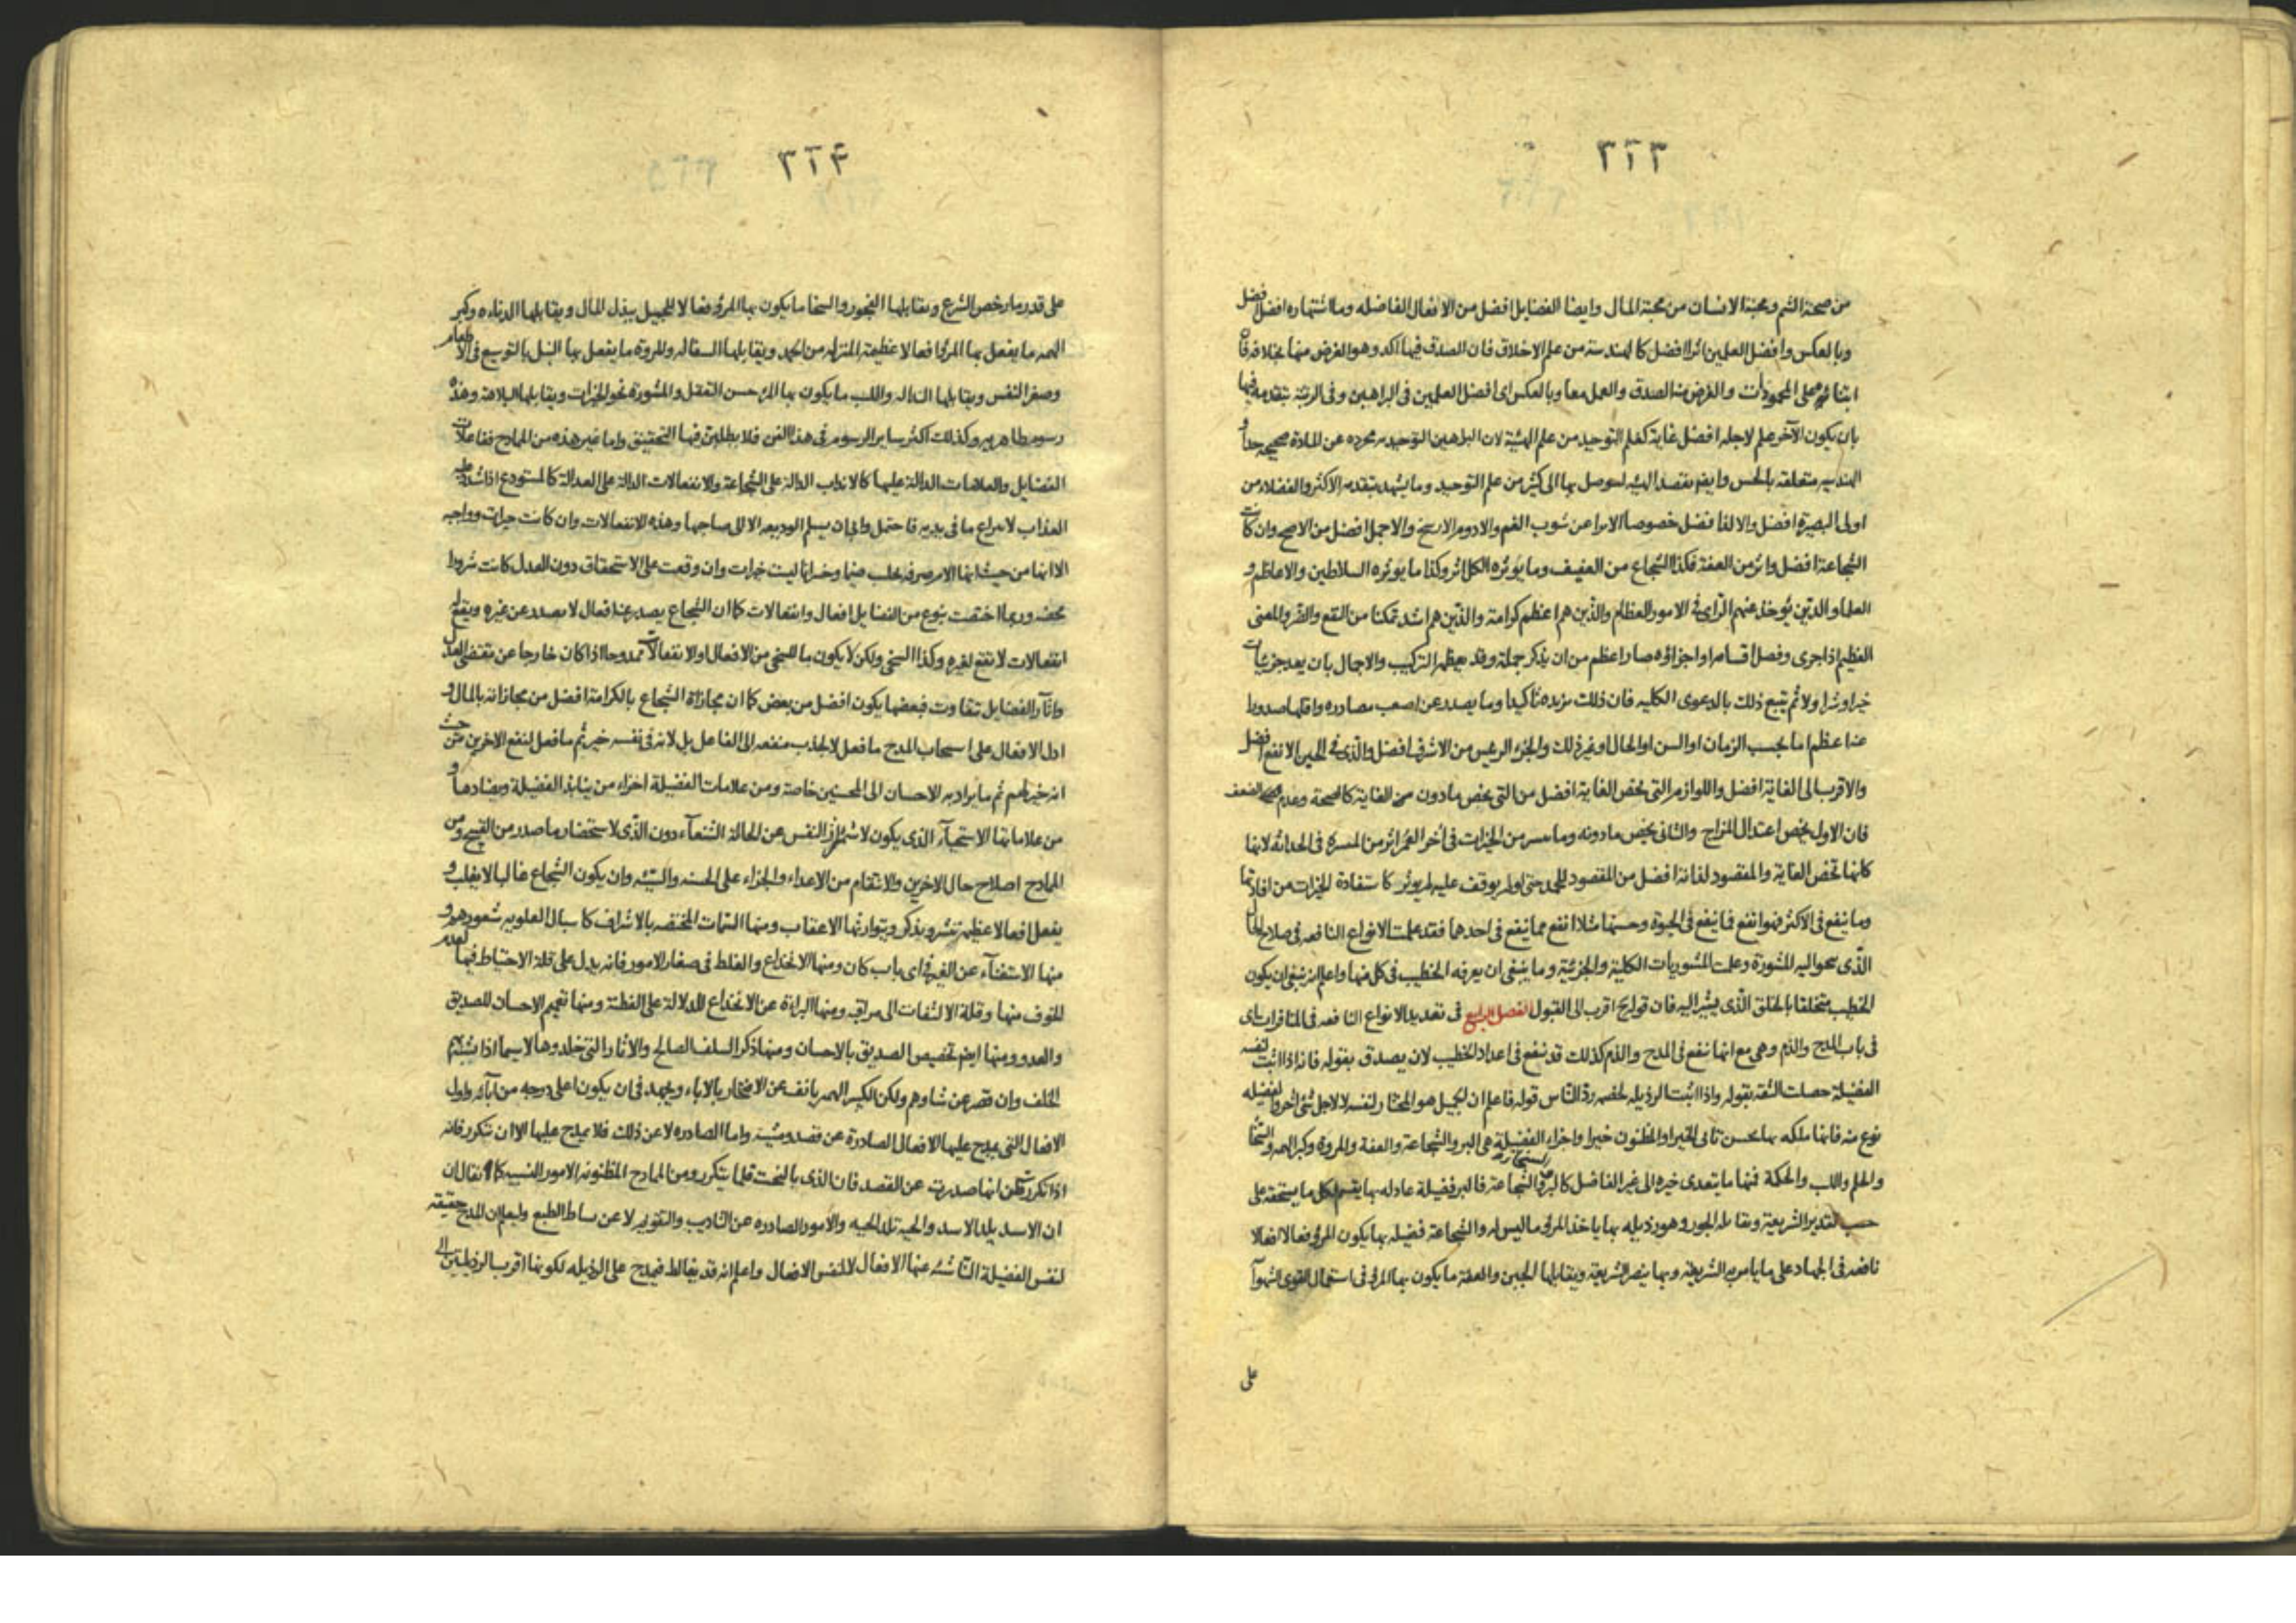 ٣٢٣
من صحة الشم ومحبة الانسان من محبة المال وايضا الفضايل افضل من الافعال الفاضله وما اشتهاره افضل افضل
وبالعكس وافضل العلمين اثرا افضل كالهندسة من علم الاخلاق فان الصدق فيها اكد وهو الغرض منها بخلافه فان
ابتنائه على المحمودات والغرض منه الصدق والعمل معا وبالعكس اى افضل العلمين فى البراهين وفى الرتبة بتقدمه فيها
بان يكون الآخر علم لاجله افضل غاية كعلم التوحيد من علم الهيئة لان البراهين التوحيديه مجرده عن المادة صحيحه جدا و
الهندسيه متعلقه بالحس وايضا بقصد الهيئه لتوصل بها الى كثير من علم التوحيد وما يشهد بتقدمه الاكثر والفضلاء من
اولى البصيرة افضل والالفا فضل خصوصا الابرا عن شوب الغم والادوم الارسخ والاجمل افضل من الاصح وان كانت
الشجاعة افضل واثر من العفة فكذا الشجاع من العفيف وما يؤثره الكل اثر وكذا ما يؤثره السلاطين والاعاظم و
العلماء والذين يؤخذ عنهم الراى فى الامور العظام والذين هم اعظم كرامة والذين هم اشد تمكنا من النفع والضر والمعنى
العظيم اذا جرى وفصل اقسامه او اجزاؤه صار اعظم من ان يذكر جملة وقد يعظم التركيب والاجمال بان يعد جزئيات
خيرا وشرا ولا ثم يتبع ذلك بالدعوى الكليه فان ذلك مزيده تاكيدا وما يصدر عن اصعب مصادره واقلها صدورا
عنه اعظم اما بحسب الزمان او السن او الحال او غير ذلك والجزء الرئيس من الاشرف افضل والذى فى الحين الانفع افضل
والاقرب الى الغاية افضل واللوازم التى تخص الغاية افضل من التى تخص مادون من الغاية كالصحة وعدم الضعف
فان الاول يخص اعتدال المزاج والثانى يخص مادونه وما مسر من الخيرات فى آخر العمر اثر من المسرة فى الحداثه لانها
كانها تخص الغاية والمقصود لذاته افضل من المقصود للمجد حتى لو لم يوقف عليه لم يؤثر كاستفادة الخيرات من افادتها
وما ينفع فى الاكثر فهو انفع فما ينفع فى الحيوة وحسنها مثلا انفع مما ينفع فى احدهما فقد علمت الانواع النافعه فى صلاح الحال
الذى نحو اليه المشورة وعلمت المشوريات الكلية والجزئية وما ينبغى ان يعرفه الخطيب فى كل منها واعلم انه ينبغى ان يكون
الخطيب متخلقا بالخلق الذى يشير اليه فان قوله ح اقرب الى القبول الفصل الرابع فى تعديد الانواع النافعه فى المنافرات اى
فى باب المدح والذم وهى مع انها تنفع فى المدح والذم كذلك قد تنفع فى اعداد الخطيب لان يصدق بقوله فانه اذا اثبت لنفسه
الفضيلة حصلت الثقه بقوله واذا اثبت الرذيله لخصمه رد الناس قوله فاعلم ان الجميل هو المختار لنفسه لا لاجل شئ آخر والفضيله
نوع منه فانها ملكه بها يحسن تاتى الخير او المظنون خيرا واجزاء الفضيلة هى البر والشجاعة والعفة والمروة وكبر الهمه والسخا
والحلم واللب والحكمة فمنها ما يتعدى خيره الى غير الفاضل كالبر والشجاعة فالبر فضيلة عادله بها يقسم لكل ما يستحقه على
حسب تقدير الشريعة ويقابله الجور وهو رذيله بها ياخذ المرؤ ما ليس له والشجاعة فضيله بها يكون المرؤ فعالا افعالا
نافعه فى الجهاد على ما يامر به الشريعة وبها ينصر الشريعة ويقابلها الجبن والعفة ما يكون بها المرؤ فى استعمال القوى الشهوآ
على
٣٢۴
على قدر ما رخص الشرع ويقابلها الفجور والسخا ما يكون بها المرؤ فعالا للجميل ببذل المال ويقابلها الدناءه وكبر
الهمه ما يفعل بها المرؤ افعالا عظيمة المنزله من الحمد ويقابلها السفاله والمروة ما يفعل بها النبل بالتوسيع فى الاطعام
وصغر النفس ويقابلها النذاله واللب ما يكون بها المرؤ حسن التعقل والمشورة نحو الخيرات ويقابلها البلاهة وهذه
رسوم ظاهريه وكذلك اكثر ساير الرسوم فى هذا الفن فلا يطلبن فيها التحقيق واما غير هذه من المادح ففاعلات
الفضايل والعلامات الدالة عليها كالانداب الدالة على الشجاعة والانفعالات الدالة على العدالة كالمستودع اذا شدد عليه
العذاب لانتزاع ما فى يديه فاحتمل وابى ان يسلم الوديعه الا الى صاحبها وهذه الانفعالات وان كانت خيرات وواجبه
الا انها من حيث انها الامر صرفه بجلب ضرا وخسرانا ليست خيرات وان وقعت على الاستحقاق دون العدل كانت شرورا
محضه وربما اختصت بنوع من الفضايل افعال وانفعالات كما ان الشجاع يصدر عنه افعال لا يصدر عن غيره ويقع له
انفعالات لا تقع لغيره وكذا السخى ولكن لا يكون ما للسخى من الافعال او الانفعالات ممدوحا اذا كان خارجا عن مقتضى العدل
واثار الفضايل تتفاوت فبعضها يكون افضل من بعض كما ان مجازاة الشجاع بالكرامة افضل من مجازاته بالمال و
ادل الافعال على استحباب المدح ما فعل لا لجذب منفعه الى الفاعل بل لانه فى نفسه خير ثم ما فعل لنفع الاخرين من حيث
انه خير لهم ثم ما يراد به الاحسان الى المحسنين خاصة ومن علامات الفضيلة اخزاء من ينابذ الفضيلة ويضادها و
من علاماتها الاستحيآء الذى يكون لاشمئزاز النفس عن الحالة الشنعآء دون الذى لاستحضار ما صدر من القبيح ومن
المادح اصلاح حال الاخرين والانتقام من الاعداء والجزاء على الحسنه والسيئه وان يكون الشجاع غالبا لا يغلب و
يفعل افعالا عظيمه تنشر ويذكر ويتوارثها الاعقاب ومنها السمات المختصه بالاشراف كاسبال العلويه شعورهم و
منها الاستغنآء عن الغير فى اى باب كان ومنها الانخداع والغلط فى صغار الامور فانه يدل على قلة الاحتياط فيها لعدم
الخوف منها وقلة الالتفات الى مراقبه ومنها البراءة عن الانخداع للدلالة على الفطنة ومنها تعميم الاحسان للصديق
والعدو ومنها ايضا تخصيص الصديق بالاحسان ومنها ذكر السلف الصالح والاثار التى خلدوها لاسيما اذا تشبه بهم
الخلف وان قصر عن شاوهم ولكن الكبير الهمه يانف عن الافتخار بالاباء ويجهد فى ان يكون اعلى درجه من آبائه واول
الافعال التى يمدح عليها الافعال الصادرة عن قصد ومشيئة واما الصادره لا عن ذلك فلا يمدح عليها الا ان تتكرر فانه
اذا تكرر ظن انها صدرت عن القصد فان الذى بالبخت قلما يتكرر ومن المادح المظنونه الامور النسبيه كما يقال ان
ان الاسد يلد الاسد والحيه تلد الحيه والامور الصادره عن التاديب والتقويم لا عن ساط الطبع وليعلم ان المدح حقيقه
لنفس الفضيلة الناشئه عنها الافعال لا لنفس الافعال واعلم انه قد يغالط فيمدح على الرذيله لكونها اقرب الرذيلتين الى